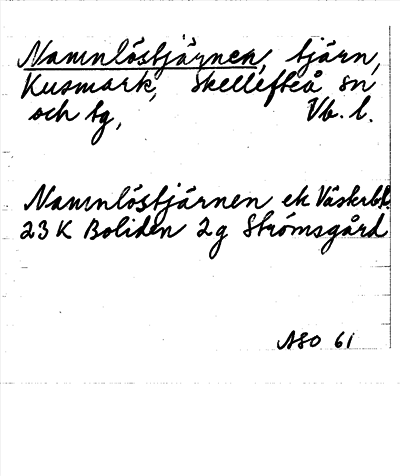 Namnlöstjärnen, tjärn,
Kusmark, Skellefteå sn
och tg, Vb. l.
Namnlöstjärnen ek Västerbt.
23 K Boliden 2g Strömsgård
ASO 61